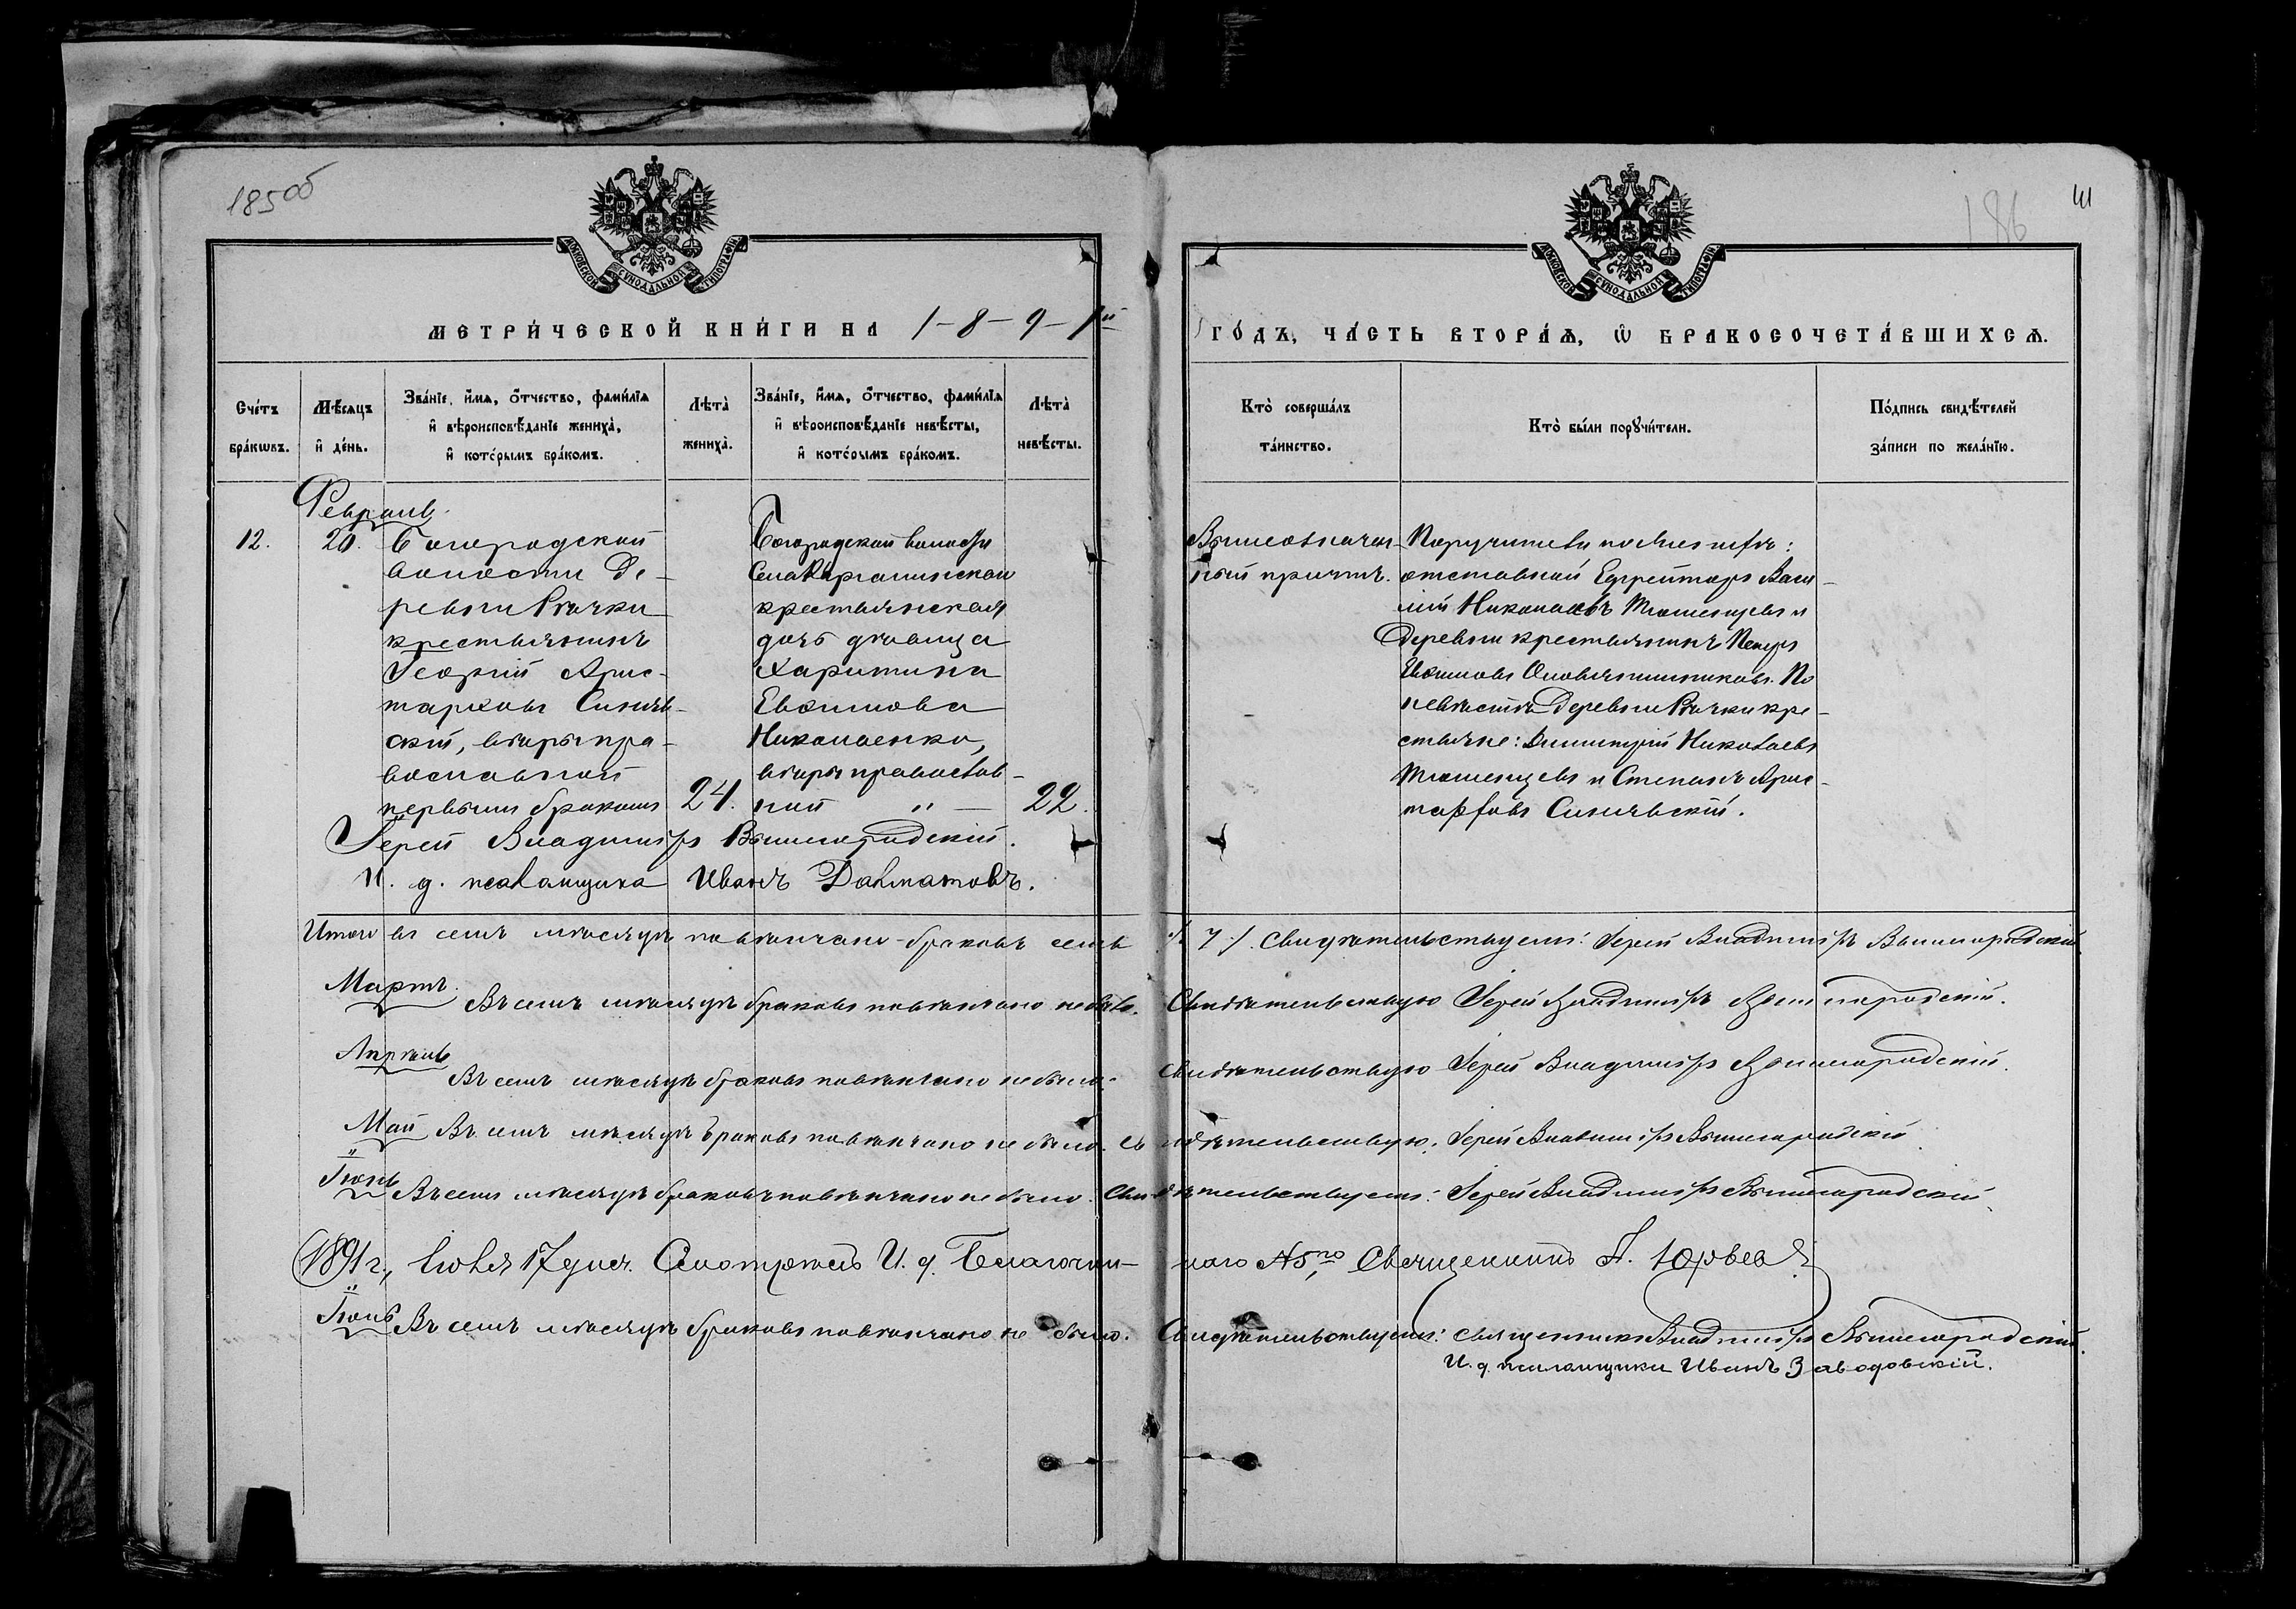 185об
186
Ш
МОСКОВСКОЙ СУНОДАЛЬНОЙ ТИПОГРАФІИ
МОСКОВСКОЙ СУНОДАЛЬНОЙ ТИПОГРАФІИ
МЕТРИ́ЧЕСКОЙ КНИ́ГИ НА 1-8-9-1й
ГО́ДЪ, ЧА́СТЬ ВТОРА́Ѧ, Ѽ БРАКОСОЧЕТА́ВШИХСѦ.
Сче́тъ
бра́кѡвъ.
Мѣ́сяцъ
и҆ де́нь.
Зва́нїе, и҆́мѧ, ѻ҆́тчество, фами́лїѧ
и҆ вѣроисповѣ́данїе жениха̀,
и҆ кото́рымъ бра́комъ.
Лѣта̀
жениха̀.
Зва́нїе, и҆́мѧ, ѻ҆́тчество, фами́лїѧ
и҆ вѣроисповѣ́данїе невѣ́сты,
и҆ кото́рымъ бра́комъ.
Лѣта̀
невѣ́сты.
Кто̀ соверша́лъ
та́инство.
Кто̀ бы́ли порꙋчи́тели.
По́дпись свидѣ́телей
за́писи по жела́нїю.
Февраль
12.
20.
Богородской
волости де-
ревни Рѣчки
крестьянинъ
Георгій Арис-
тарховъ Синяв-
скій, вѣры пра-
вославной
первымъ бракомъ
24.
Богородской волости
села
крестьянская
дочь дѣвица
Харитина
Евфимова
Николаенко,
вѣры православ-
ной „ —
22.
Вышеозначен-
ный причтъ.
Поручители по женихѣ:
отставной Ефрейторъ Васи-
лій Николаевъ Тюменцевъ и
деревни крестьянинъ Петръ
Евфимовъ Оловянишниковъ. По
невѣстѣ деревни Рѣчки кре-
стьяне: Димитрій Николаевъ
Тюменцевъ и Степанъ Арис-
тарховъ Синявскій.
Іерей Владиміръ Вышегородскій.
И. д. псаломщика Иванъ Далматовъ.
Итого въ семъ мѣсяцѣ повѣнчано браковъ семь ./. 7 ./. Свидѣтельствуемъ: Іерей Владиміръ Вышегородскій
Мартъ.
Въ семъ мѣсяцѣ браковъ повѣнчано не было. Свидѣтельствую Іерей Владиміръ Вышегородскій.
Апрѣль
Въ семъ мѣсяцѣ браковъ повѣнчано не было. Свидѣтельствую Іерей Владиміръ Вышегородскій.
Май Въ семъ мѣсяцѣ браковъ повѣнчано не было. Свидѣтельствую: Іерей Владиміръ Вышегородскій
Іюнь Въ семъ мѣсяцѣ браковъ повѣнчано не было. Свидѣтельствуемъ: Іерей Владиміръ Вышегородскій
1891 г., Іюля 17 дня. Смотрѣлъ И. д. Благочин-
наго №5го, Священникъ П. Юрьев
Іюль Въ семъ мѣсяцѣ браковъ повѣнчано не было. Свидѣтельствуемъ: священникъ Владиміръ Вышегородскій.
И. д. псаломщика Иванъ Заводовскій.